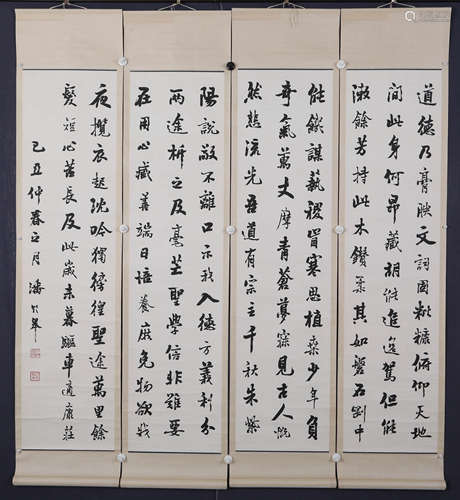 道德乃膏腴文詞固粃糠俯仰天地
間此身何昂藏胡能追逸駕但能
漱餘芳持此木鑽柔其如磐石剛中
能欽謀藝稷冒寒思植桑少年負
奇氣萬丈摩青蒼夢寐見古人慨
然悲流光吾道有宗主千秋朱紫
陽說敬不離口示我入德方義利分
兩途析之及毫芒聖學信非難要
在用心臧善端日培養庶免物欲戕
夜攬衣起沈吟獨徬徨聖途萬里餘
髮短心苦長及此歲未暮驅車適康莊
己丑仲春之月潘